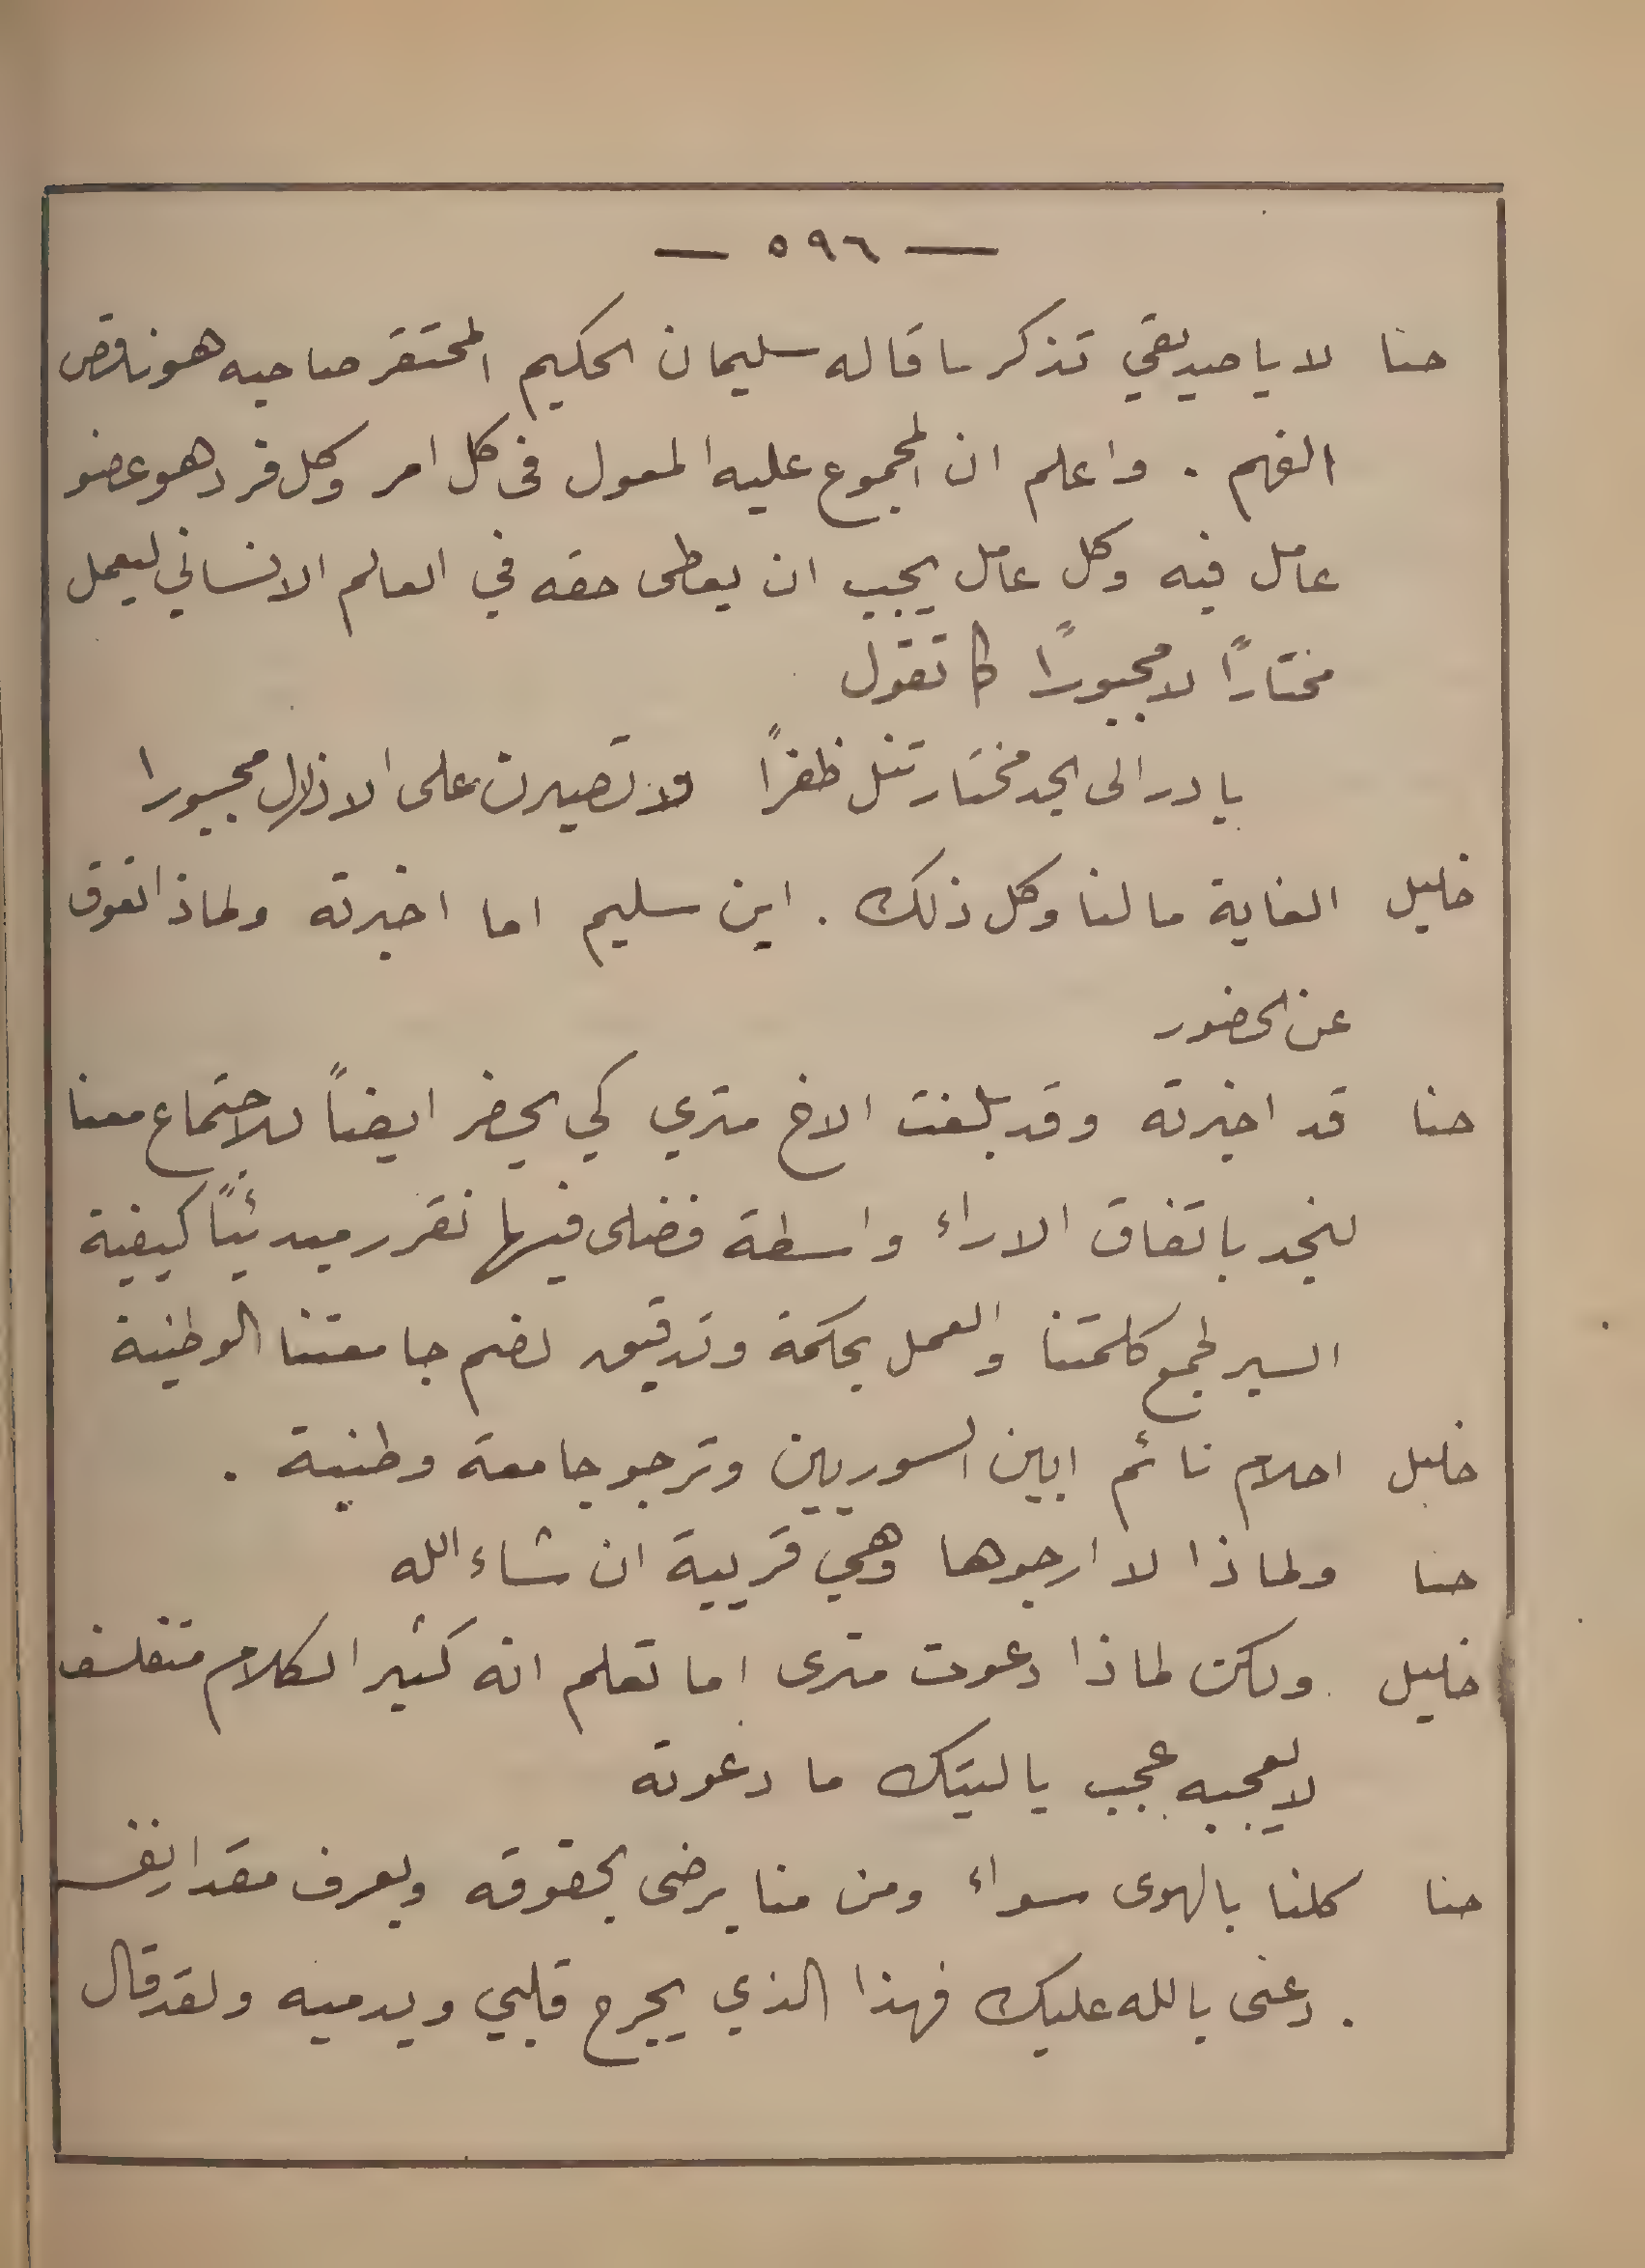 — ٥٩٦ —
حنا لا يا صديقي تذكر ما قاله سليمان الحكيم المحتقر صاحبه هو ناقص
الفهم . واعلم ان المجموع عليه المعول في كل امر وكل فرد هو عضو
عامل فيه وكل عامل يجب ان يعطى حقه في العالم الانساني ليعمل
مختاراً لا مجبوراً كما تقول
بادر الى الجد مختار تنل ظفراً ولا تصيرن على الاذلال مجبورا
خليل الغاية ما لنا وكل ذلك . اين سليم اما اخبرته ولماذا تعوق
عن الحضور
حنا قد اخبرته وقد بلغت الاخ متري كي يحضر ايضاً للاجتماع معنا
لنجد باتفاق الاراء واسطة فضلى فيها نقرر مبدئياً كيفية
السير لجمع كلمتنا والعمل بحكمة وتدقيق لضم جامعتنا الوطنية
خليل احلام نائم ابين السوريين وترجو جامعة وطنية .
حنا ولماذا لا ارجوها وهي قريبة ان شاء الله
خليل ولكن لماذا دعوت مترى اما تعلم انه كثير الكلام متفلسف
لا يعجبه عجب يا ليتك ما دعوته
حنا كلنا بالهوى سواء ومن منا يرضى بحقوقه ويعرف مقدار نفسه
. دعنى بالله عليك فهذا الذي يجرح قلبي ويدميه ولقد قال